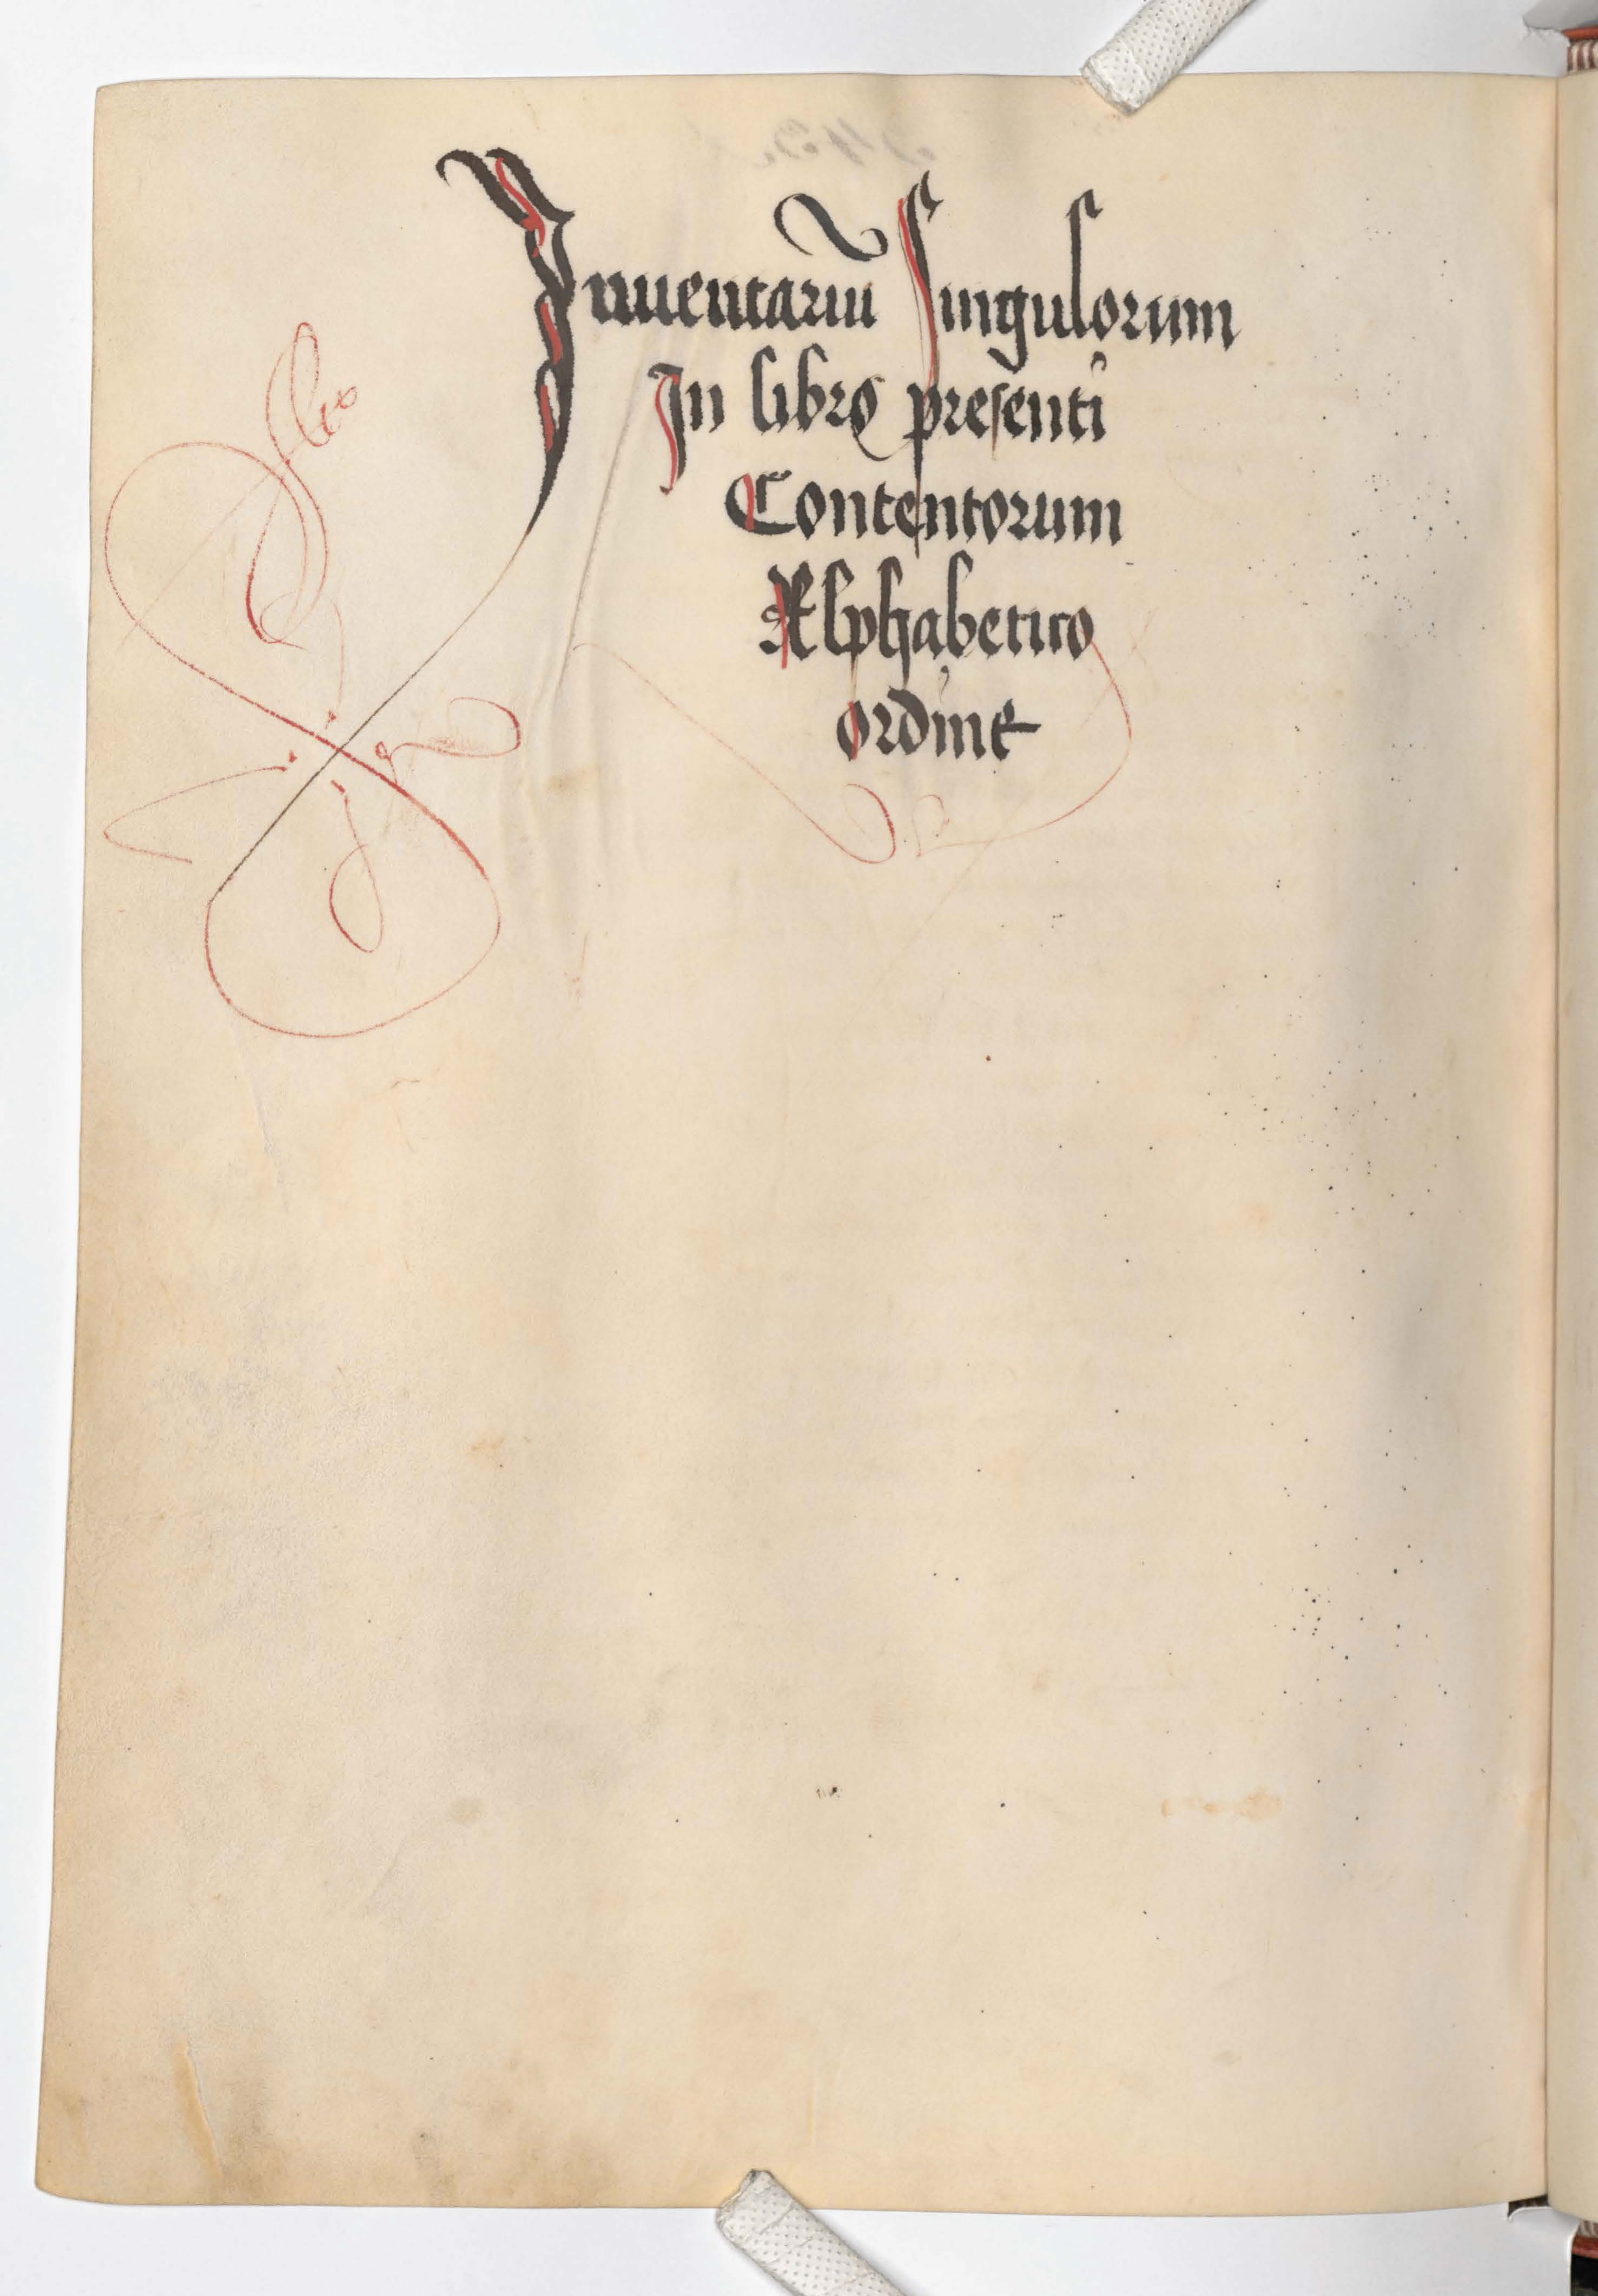 Inuentariū Singulorum
In libro presenti
Contentorum
Alphabetico
ordine